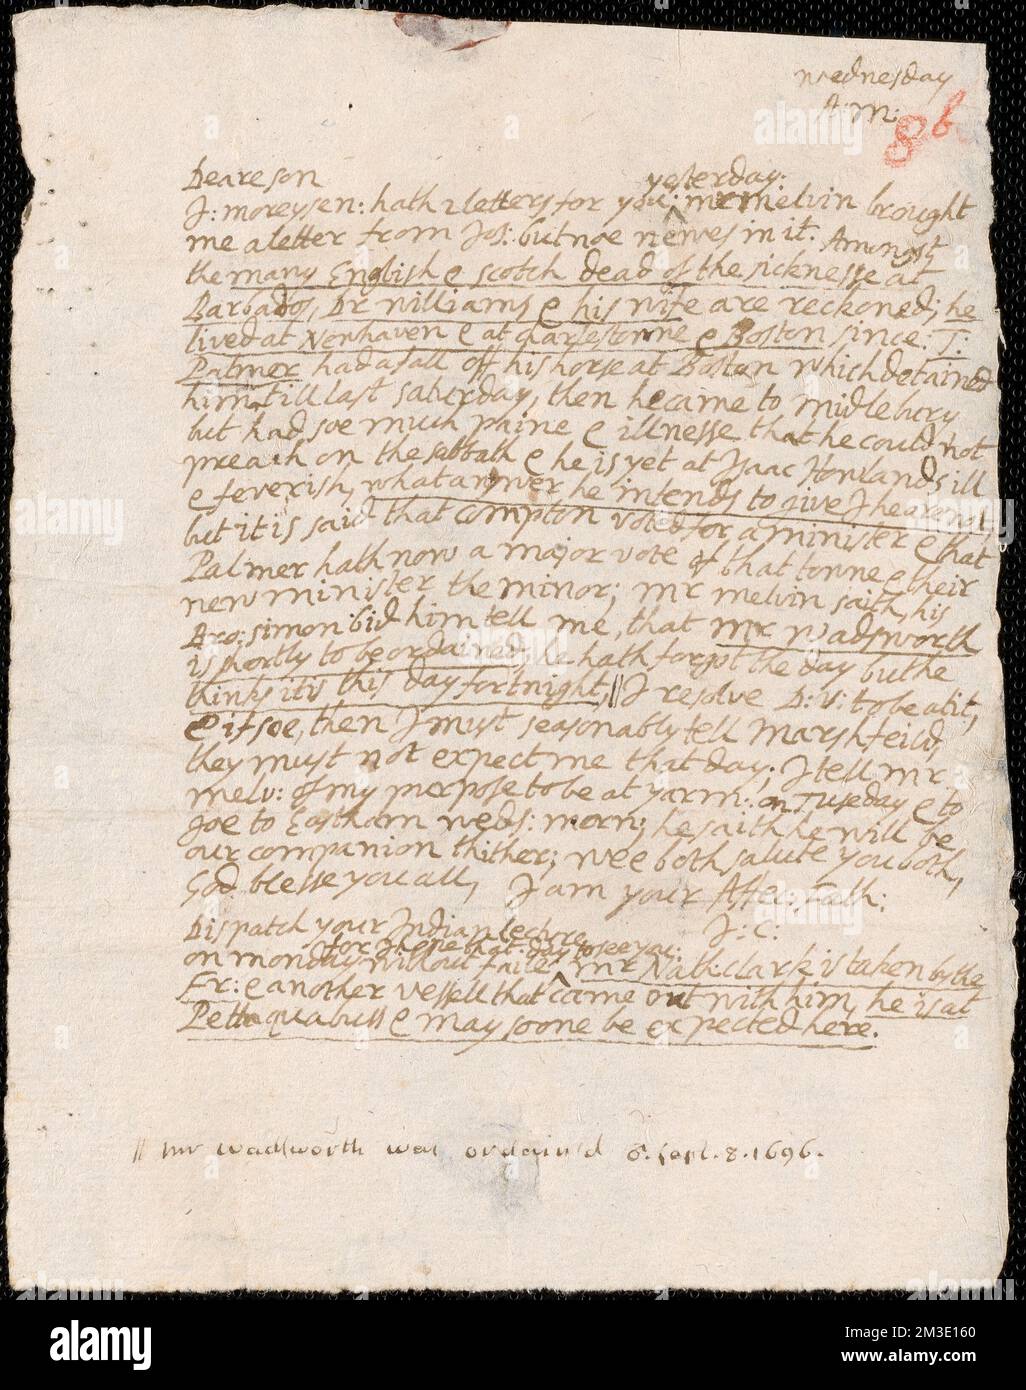 wednesday
A:M:
8b
Deare son
yesterday:
J: moreysen: hath 2 letters for you: mr melvin brought
me a letter from Jos: but noe newes in it. Amongst
the many English & scotch dead of the sicknesse at
Barbados, Dr williams & his wife are reckoned; he
lived at Newhaven & at charlestowne & Boston since: T:
Palmer had a fall off his horse at Boston which detained
him till last saturday, then he came to midlebury
but had soe much paine & illnesse that he could not
preach on the sabbath & he is yet at Isaac Howlands ill
& feverish, what answer he intends to give I heare not
but it is said that compton voted for a minister & that
Palmer hath now a major vote of that towne & their
new minister the minor; mr melvin saith, his
Bro: simon bid him tell me, that mr wadsworth
is shortly to be ordained, he hath forgot the day but he
thinks it is this day fortnight, || I resolve D:V: to be at it,
& if soe, then I must seasonably tell Marshfeild,
they must not expect me that day; I tell mr
melv: of my purpose to be at yarm: on Tuseday & to
Joe to Eastham weds: morn; he saith he will be
our companion thither; wee both salute you both,
God blesse you all, I am your Affec: Fath:
J: C:
Dispatch your Indian lecture
for I hope that day to see you:
on monday without faile. mr Nath: clark is taken by the
Fr: & another vessell that came out with him, he is at
Pettaquabuss & may soone be expected here.
|| mr wadsworth was ordain'd d. sept. 8. 1696.
alamy
Image ID: 2M3E160
www.alamy.com